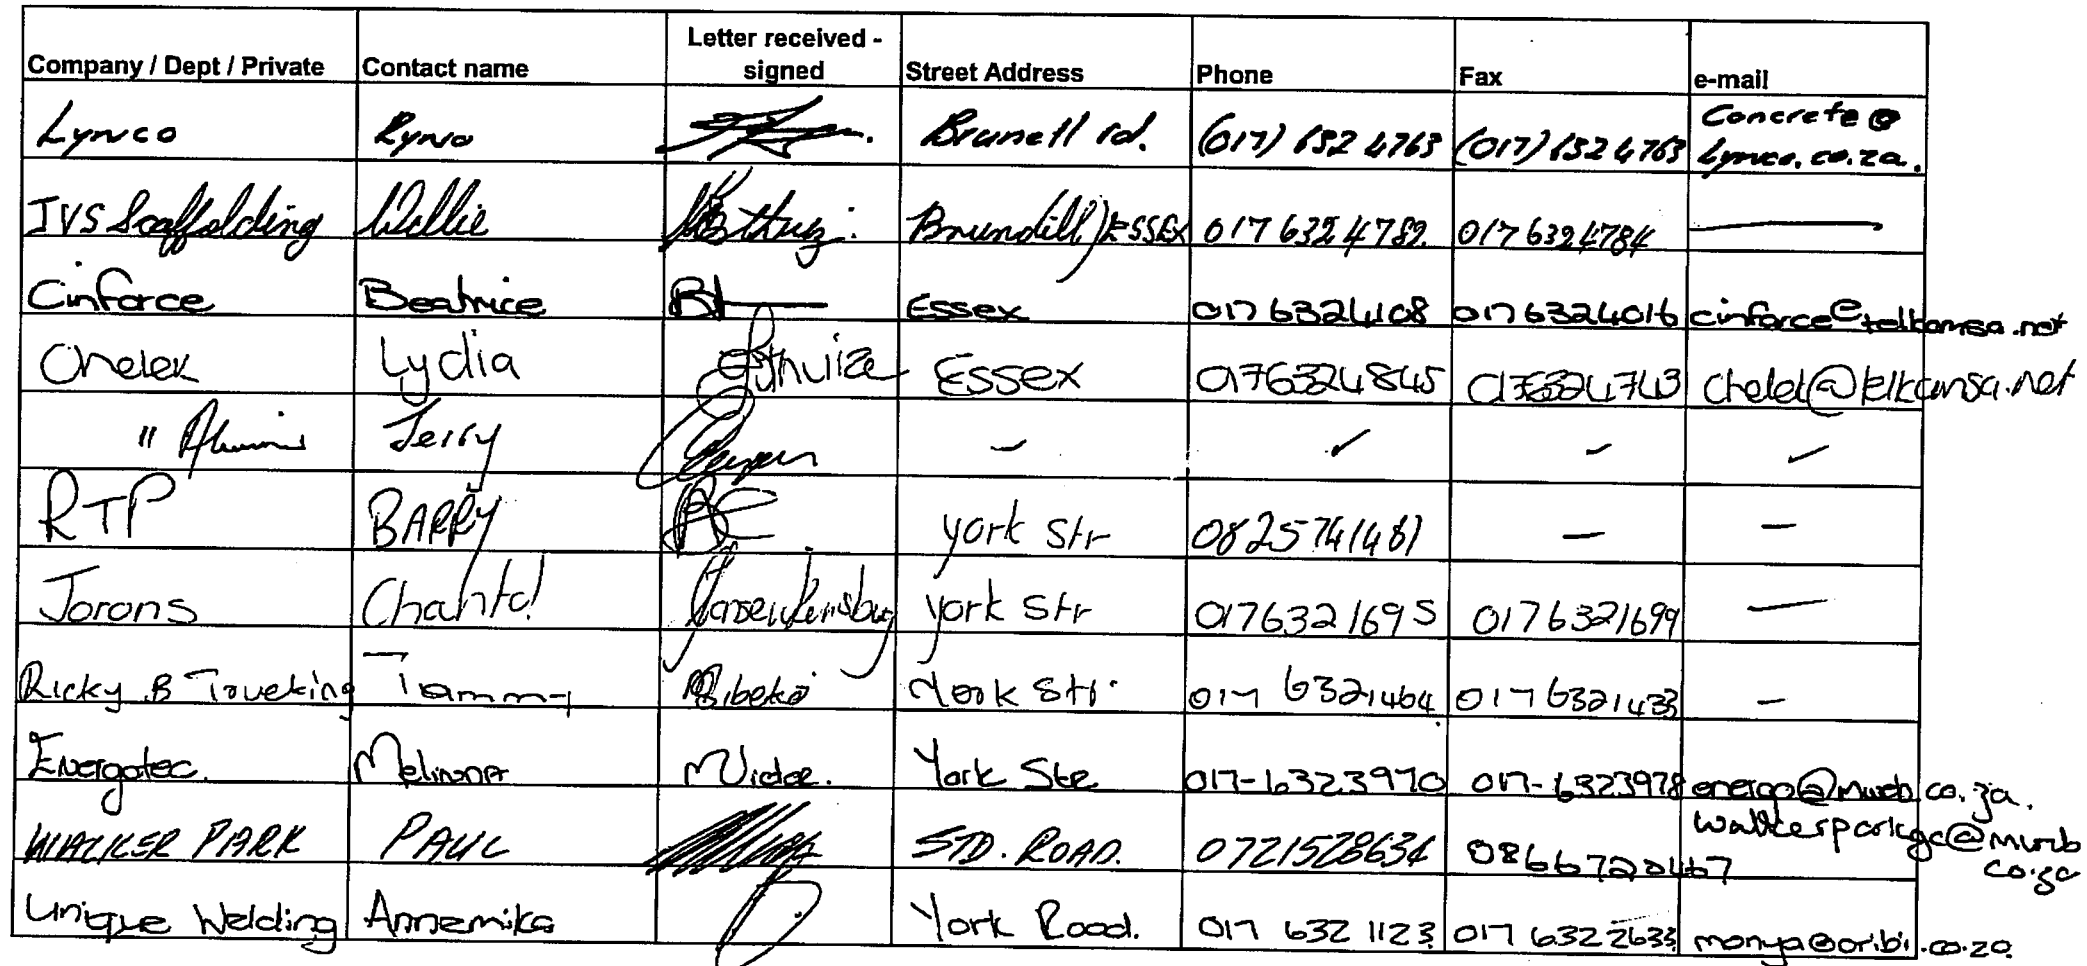 Letter received -
Company / Dept / Private Contact name signed Street Address Phone Fax e-mail
Concrete@
Lynco Ryno Brunell rd. (017) 632 4763 (017) 632 4763 Lynco.co.za.
JVS Scaffolding Willie ESSEX 017 632 4782 0176324784 —
Cinforce Beatrice Essex 017 6324108 017 6324016 cinforce@telkomsa.net
Chelek Lydia Essex 0176324845 0176324743 @telkomsa.net
" Jerry – ✓ – ✓
RTP BARRY York Str 0825741481 — –
Jorons Chantal York Str 0176321695 0176321699 —
Ricky B Trucking Tammy York Str. 017 6321464 017 6321433 –
Energotec. York Str. 017-6323970 017-6323978 energo@mweb.co.za.
WALKER PARK PAUL STD. ROAD. 0721528634 0866720467 walkerparkgc@mweb
co.za
Unique Welding Annemika York Road. 017 632 1123 017 632 2633 monya@oribi.co.za